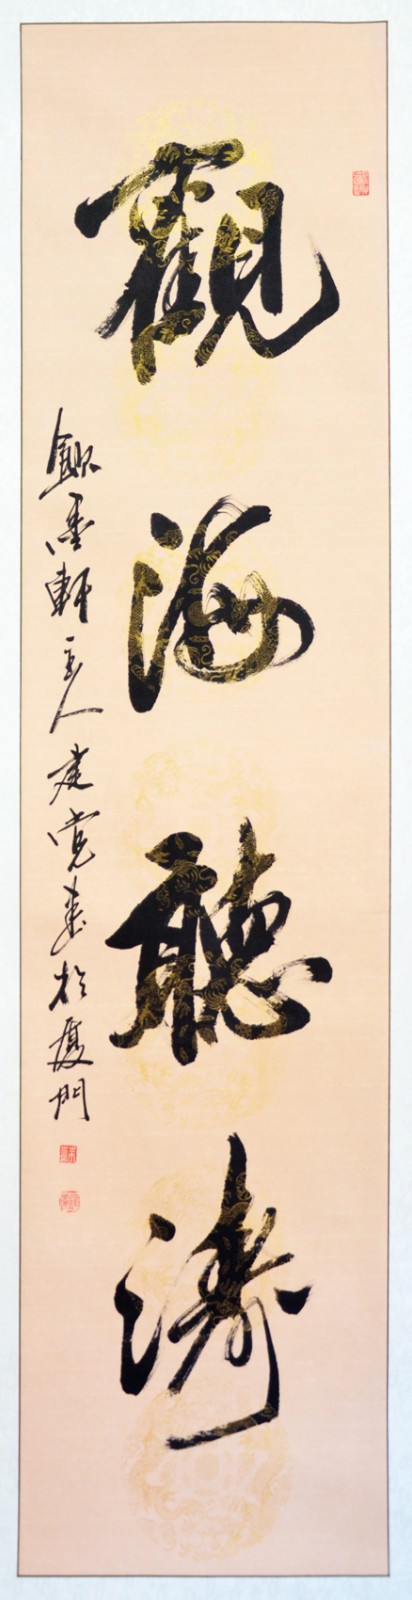 觀海聽濤
墨軒主人建党書於厦門